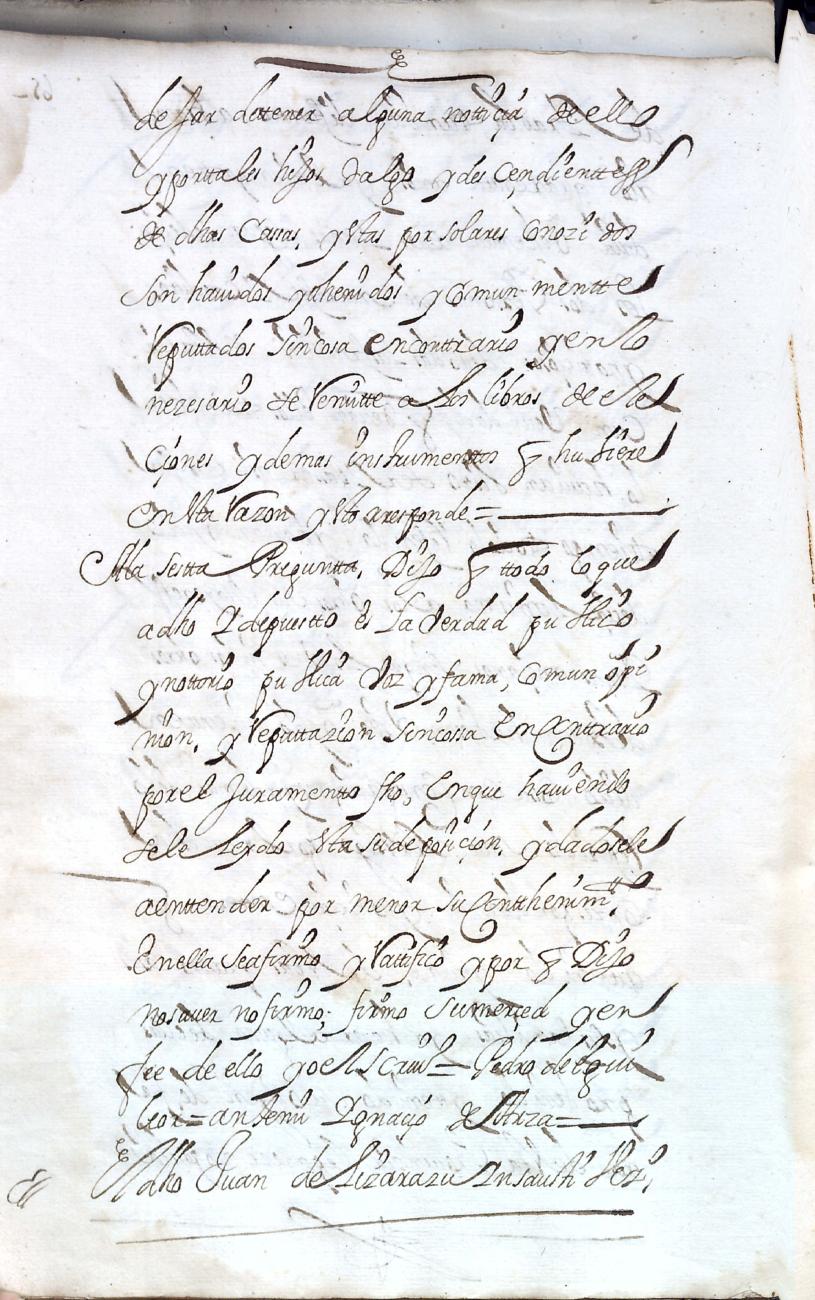 dejar de ttener alguna notticia de ello
y por ttales hijos dalgo y descendienttes
de dhas Casas, y Vttas por solares Conozidos
son havidos y thenidos y Comunmentte
Reputtados sin cosa en conttrario y en lo
nezesario se Remitte a los libros de ele
Ciones y demas instrumenttos q hubiere
en Vtta Razon y Vtto rresponde =
A la sexta Pregunta, Dijo q ttodo lo que
a dho y depuestto es la Verdad publico
y nottorio, publica Voz y fama, Comun opi
nion, y Reputtazion sin cossa En Conttrario
por el Juramento fho, En que haviendo
sele leydo Vtta su deposicion, y dadosele
a enttender por menor su Conthenimto,
En ella se afirmo y Rattifico y por q Dijo
no saver no firmo; firmo su merced y en
fee de ello yo el Scriuo = Pedro de Egui
Cior = antemi Ygnacio de Atorza =
El dho Juan de Lizarazu Ynsausti Vezo,